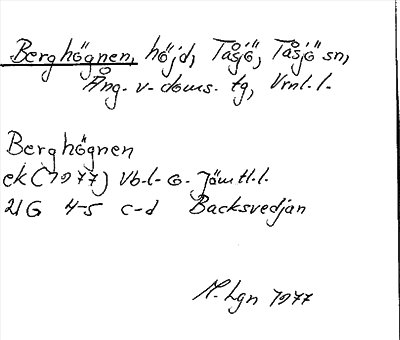 Berghögnen, höjd, Tåsjö, Tåsjö sn,
Ång. v. doms. tg, Vrnl. l.
Berghögnen
ek (1977) Vb. l. o. Jömtl. l.
21G 4-5 c-d Backsvedjan
M. Lgn 1977